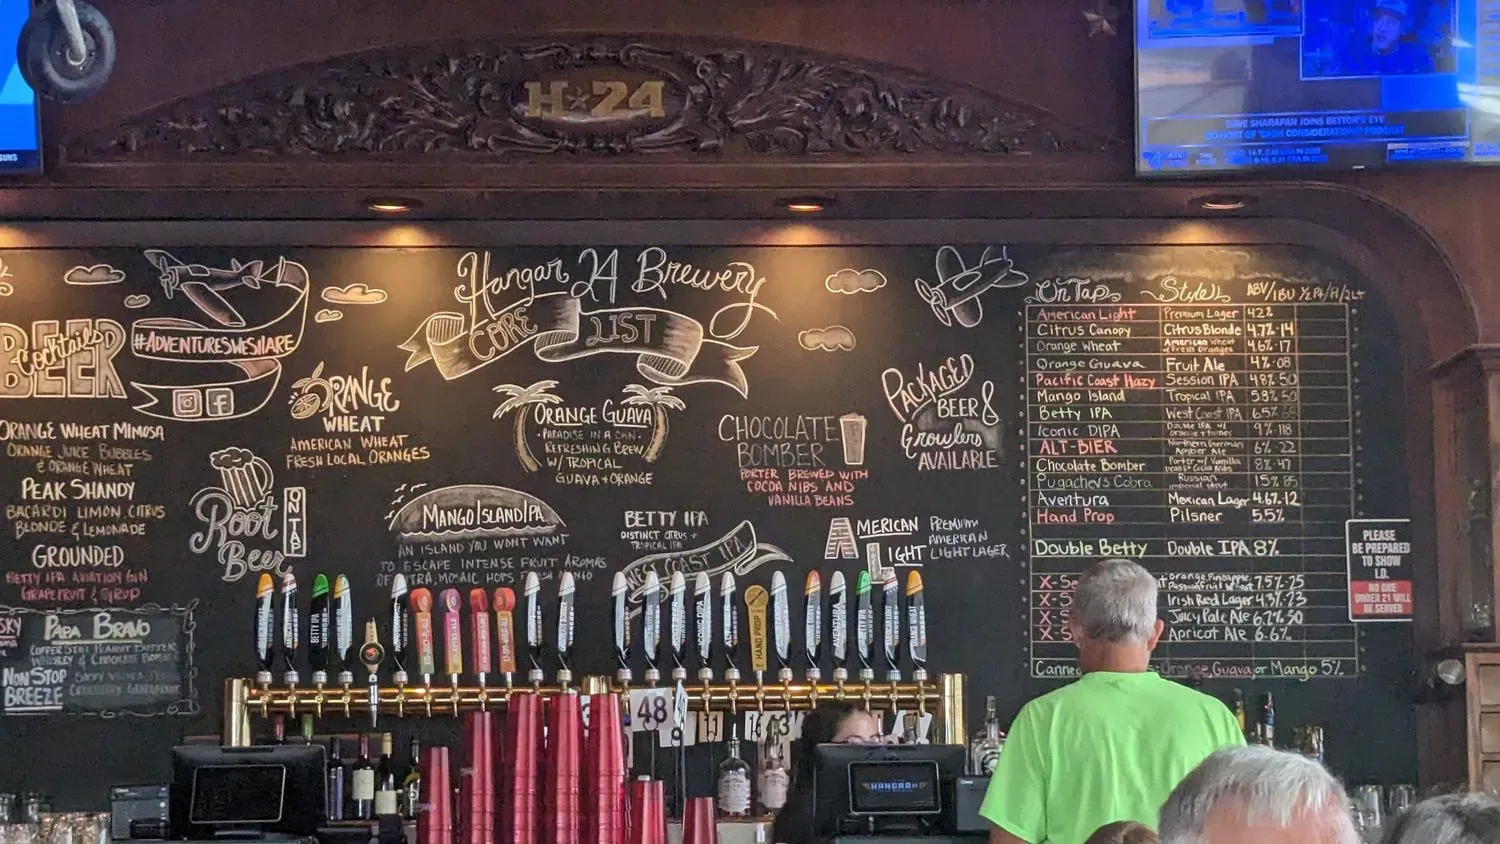 H★24
DAVE SHARAPAN JOINS BETTOR'S EYE
CO-HOST OF 'CASH CONSIDERATIONS' PODCAST
SUNS
Hangar 24 Brewery
CORE LIST
BEER
Cocktails
#ADVENTURESWESHARE
ORANGE WHEAT MIMOSA
ORANGE JUICE, BUBBLES
& ORANGE WHEAT
PEAK SHANDY
BACARDI LIMON, CITRUS
BLONDE & LEMONADE
GROUNDED
BETTY IPA, AVIATION GIN
GRAPEFRUIT & SYRUP
PAPA BRAVO
WHISKEY & CHOCOLATE BOMBER
NON STOP
BREEZE
ORANGE
WHEAT
AMERICAN WHEAT
FRESH LOCAL ORANGES
Root
Beer
ON TAP
ORANGE GUAVA
PARADISE IN A CAN
REFRESHING BREW
W/ TROPICAL
GUAVA + ORANGE
MANGO ISLAND IPA
AN ISLAND YOU WONT WANT
TO ESCAPE INTENSE FRUIT AROMAS
OF CITRA, MOSAIC HOPS FRESH MANGO
BETTY IPA
DISTINCT CITRUS +
TROPICAL IPA
WEST COAST IPA
CHOCOLATE
BOMBER
PORTER BREWED WITH
COCOA NIBS AND
VANILLA BEANS
PACKAGED
BEER &
Growlers
AVAILABLE
AMERICAN
LIGHT
PREMIUM
AMERICAN
LIGHT LAGER
On Tap Style ABV/IBU
American Light Premium Lager 4.2%
Citrus Canopy Citrus Blonde 4.7% · 14
Orange Wheat American Wheat Fresh Oranges 4.6% · 17
Orange Guava Fruit Ale 4% · 08
Pacific Coast Hazy Session IPA 4.8% 50
Mango Island Tropical IPA 5.8% 50
Betty IPA West Coast IPA 6.5%
Iconic DIPA 9% · 118
ALT-BIER Northern German Amber Ale 6% · 22
Chocolate Bomber Porter w/ Vanilla beans + Cocoa Nibs 8% · 47
Pugachev's Cobra Russian imperial stout 15% 85
Aventura Mexican Lager 4.6% · 12
Hand Prop Pilsner 5.5%
Double Betty Double IPA 8%
X-Se Orange Pineapple Passionfruit 7.5% · 25
X-S Irish Red Lager 4.3% · 23
X-S Juicy Pale Ale 6.2% 50
X-S Apricot Ale 6.6%
Canne Orange, Guava or Mango 5%
PLEASE
BE PREPARED
TO SHOW
I.D.
NO ONE
UNDER 21 WILL
BE SERVED
BETTY IPA
HAND PROP
48
11
HANGAR